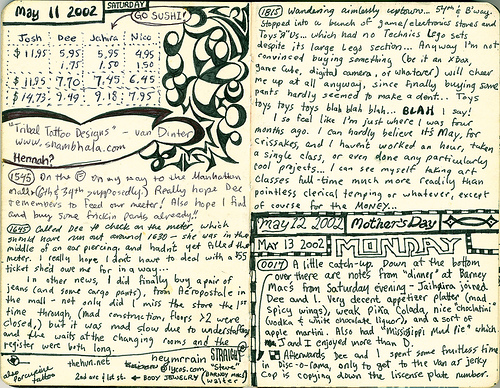 May 11 2002
SATURDAY
GO SUSHI!
Josh Dee Jahira Nico
$11.95 5.95 5.95 4.95
1.75 1.50 1.50
$11.95 7.70 7.45 6.45
$14.73 9.49 9.18 7.95
"Tribal Tattoo Designs" - van Dinter
www.shambhala.com
Hennah?
1545 On the F on my way to the Manhattan
Mall (6th & 34th supposedly.) Really hope Dee
remembers to feed our meter! Also hope I find
and buy some frickin pants already!!
1645 Called Dee to check on the meter, which
should have run out around 1630. She was in the
middle of an ear piercing, and hadn't yet filled the
meter. I really hope I dont have to deal with a $55
ticket she'd owe me for in a way...
In other news, I did finally buy a pair of
jeans (and some cargo pants), from Aeropostale in
the mall - not only did I miss the store the 1st
time through, (mad construction, floors >2 were
closed,) but it was mad slow due to understaffing
and the waits at the changing rooms and the
register were both long.
STRAIGHT
thehun.net
heymrrain
@lycos.com
"Stewe"
also porcupine
tables
2nd ave & 1st st. ← BODY JEWELRY
(Walter
1815 Wandering aimlessly uptown... 54th & B'way.
Stopped into a bunch of game/electronics stores and
Toys "R" Us... which had no Technics Lego sets
despite its large Lego section... Anyway I'm not
convinced buying something (be it an X Box,
game cube, digital camera, or whatever) will cheer
me up at all anyway, since finally buying some
pants hardly seemed to make a dent... Toys
toys toys toys blah blah blah... BLAH I say!
I so feel like I'm just where I was four
months ago. I can hardly believe it's May, for
crissakes, and I haven't worked an hour, taken
a single class, or even done any particularly
cool projects... I can see myself taking art
classes full-time much more readily than
pointless clerical temping or whatever, except
of course for the MONEY...
May 12 2002 Mother's Day
MAY 13 2002 MONDAY
0017 A little catch-up. Down at the bottom
over there are notes from "dinner" at Barney
Mac's from Saturday evening - Jahira joined
Dee and I. Very decent appetizer platter (mad
spicy wings), weak Piña Colada, nice Choclatini
(vodka & white chocolate liquor), and a sort of
apple martini. Also had "Mississippi Mud pie" which
J and I enjoyed more than D.
Afterwards Dee and I spent some fruitless time
in Disc-o-rama, only to get to the van as jerky
Cop is copying down the liscense plate number.